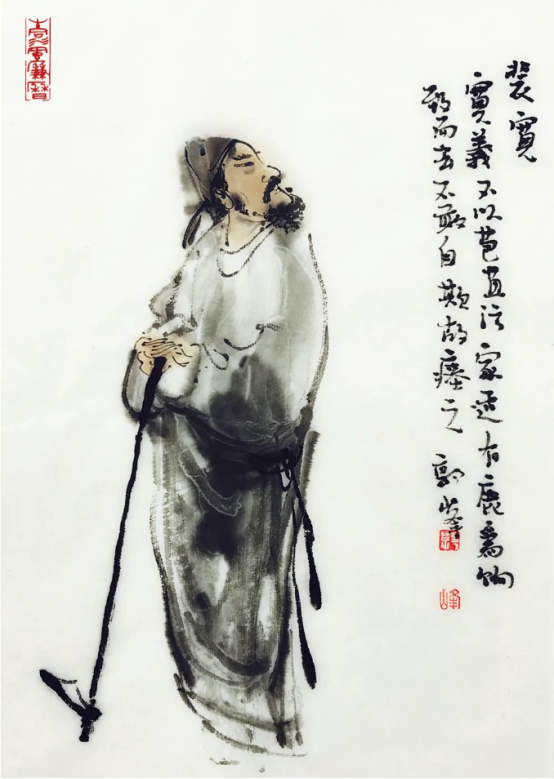 裴寬
寬義不以苞苴污家適有鹿為餉
致而去不敢自欺故瘞之 郭峯
峰